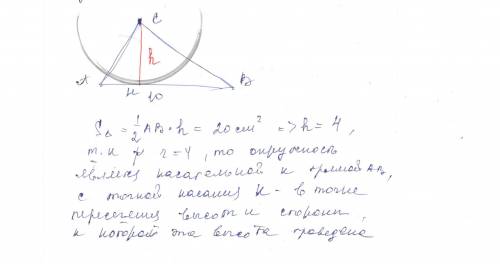 C
h
A H B
10
S△ = 1/2 AB · h = 20 см² => h = 4,
т.к r = 4, то окружность
является касательной к прямой AB,
с точкой касания H - в точке
пересечения высоты и стороны,
к которой эта высота проведена